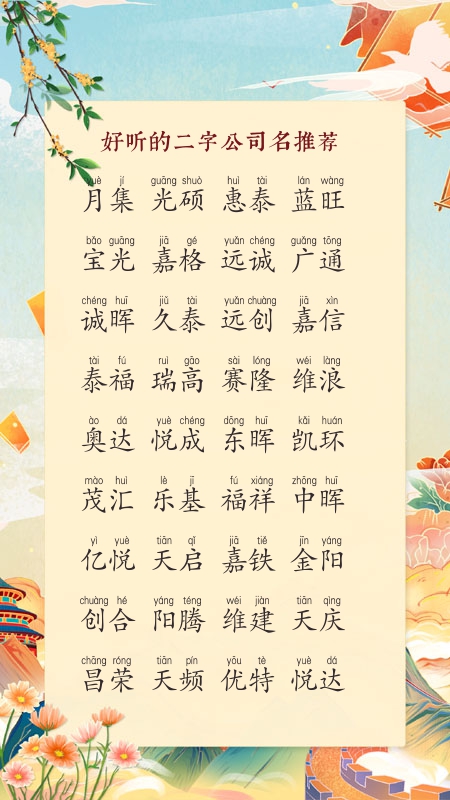 好听的二字公司名推荐
yuè jí guāng shuò huì tài lán wàng
月集 光硕 惠泰 蓝旺
bǎo guāng jiā gé yuǎn chéng guǎng tōng
宝光 嘉格 远诚 广通
chéng huī jiǔ tài yuǎn chuàng jiā xìn
诚晖 久泰 远创 嘉信
tài fú ruì gāo sài lóng wéi làng
泰福 瑞高 赛隆 维浪
ào dá yuè chéng dōng huī kǎi huán
奥达 悦成 东晖 凯环
mào huì lè jī fú xiáng zhōng huī
茂汇 乐基 福祥 中晖
yì yuè tiān qǐ jiā tiě jīn yáng
亿悦 天启 嘉铁 金阳
chuàng hé yáng téng wéi jiàn tiān qìng
创合 阳腾 维建 天庆
chāng róng tiān pín yōu tè yuè dá
昌荣 天频 优特 悦达